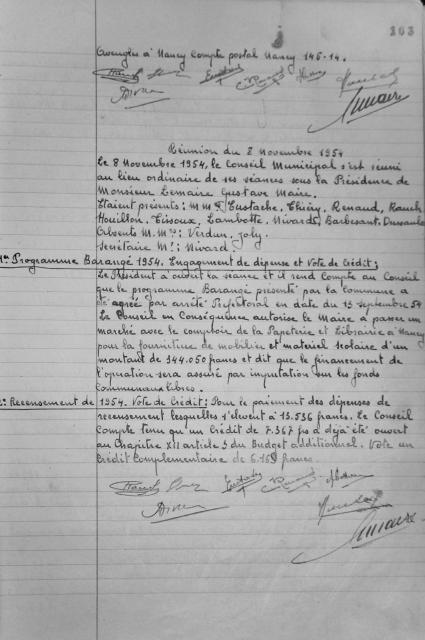 103
Aveugles à Nancy Compte postal Nancy 145-14.
Réunion du 8 Novembre 1954
Le 8 Novembre 1954, le Conseil Municipal s'est réuni
au lieu ordinaire de ses séances sous la Présidence de
Monsieur Lemaire Gustave Maire.
Etaient présents: MM. Eustache, Thiéry, Renaud, Rauch
Houillon, Tisoux, Lambotte, Nivard, Barbesant, Dussaulx
Absents M.M.: Verdun, Joly.
Secrétaire M.: Nivard.
Programme Barangé 1954. Engagement de dépense et Vote de Crédit:
Le Président a ouvert la séance et il rend Compte au Conseil
que le programme Barangé présenté par la commune a
été agréé par arrêté Préfectoral en date du 13 septembre 54
Le Conseil en Conséquence autorise le Maire à passer un
marché avec le comptoir de la Papeterie et Librairie à Nancy
pour la fourniture de mobilier et matériel scolaire d'un
montant de 344.050 francs et dit que le financement de
l'opération sera assuré par imputation sur les fonds
communaux libres.
Recensement de 1954. Vote de Crédit: Pour le paiement des dépenses de
recensement lesquelles s'élevent à 13.536 francs. Le Conseil
Compte tenu qu'un Crédit de 7.367 frs a déjà été ouvert
au Chapitre XII article 3 du Budget additionnel. Vote un
Crédit Complémentaire de 6.169 francs.